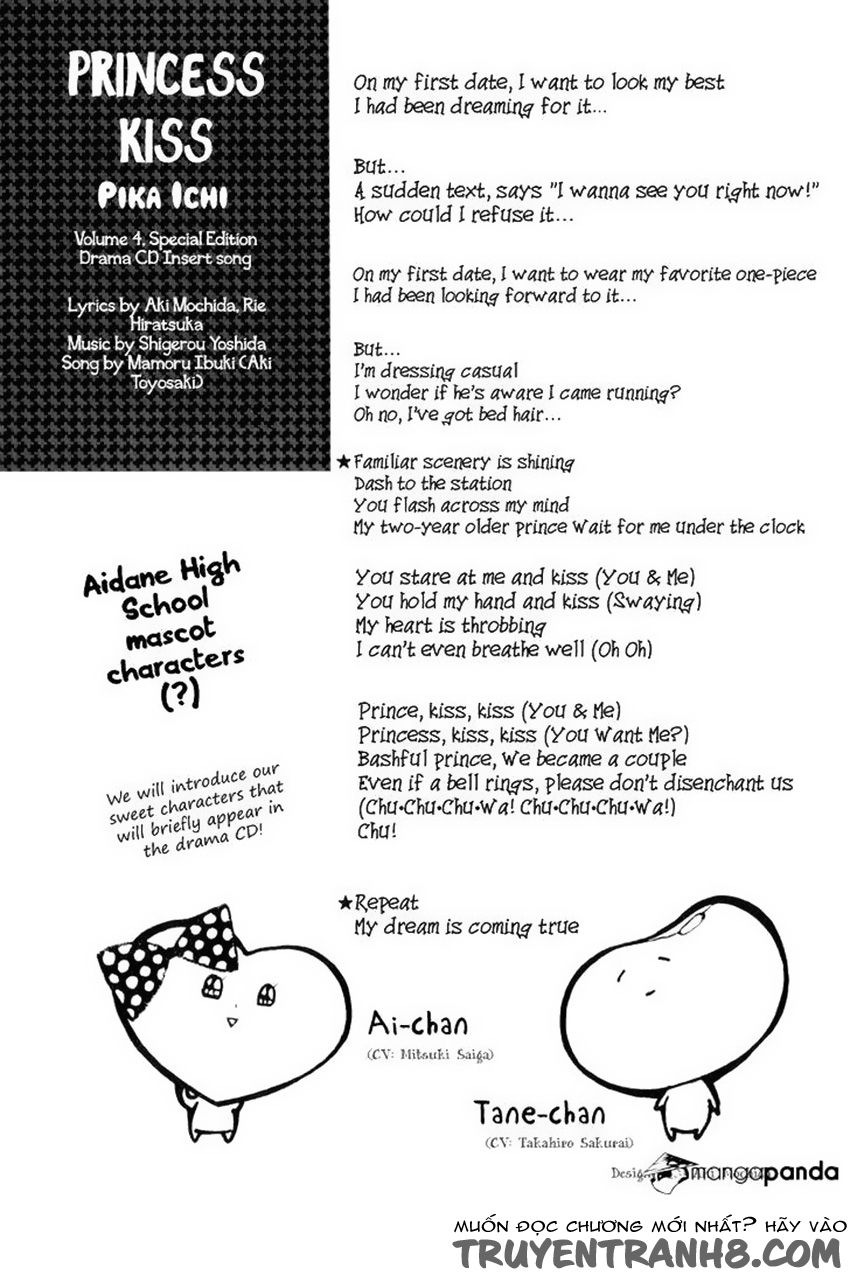 PRINCESS
KISS
PIKA ICHI
Volume 4, Special Edition
Drama CD Insert song
Lyrics by Aki Mochida, Rie
Hiratsuka
Music by Shigerou Yoshida
Song by Mamoru Ibuki (Aki
Toyosaki)
On my first date, I want to look my best
I had been dreaming for it...
But...
A sudden text, says "I wanna see you right now!"
How could I refuse it...
On my first date, I want to wear my favorite one-piece
I had been looking forward to it...
But...
I'm dressing casual
I wonder if he's aware I came running?
Oh no, I've got bed hair...
★Familiar scenery is shining
Dash to the station
You flash across my mind
My two-year older prince Wait for me under the clock
You stare at me and kiss (You & Me)
You hold my hand and kiss (Swaying)
My heart is throbbing
I can't even breathe well (Oh Oh)
Prince, kiss, kiss (You & Me)
Princess, kiss, kiss (You Want Me?)
Bashful prince, We became a couple
Even if a bell rings, please don't disenchant us
(Chu•Chu•Chu•Wa! Chu•Chu•Chu•Wa!)
Chu!
★Repeat
My dream is coming true
Aidane High
School
mascot
characters
(?)
We will introduce our
sweet characters that
will briefly appear in
the drama CD!
Ai-chan
(CV: Mitsuki Saiga)
Tane-chan
(CV: Takahiro Sakurai)
mangapanda
MUỐN ĐỌC CHƯƠNG MỚI NHẤT? HÃY VÀO
TRUYENTRANH8.COM